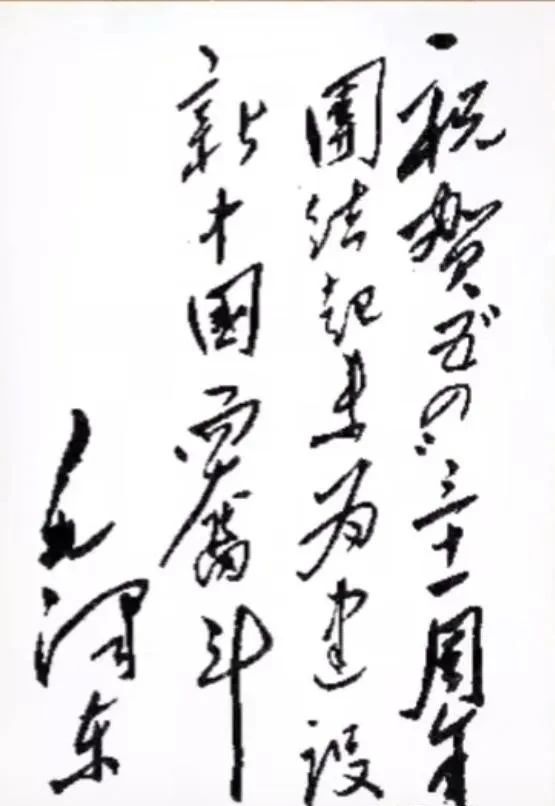 祝贺“五四”三十一周年
團结起来为建设
新中國而奮斗
毛泽东